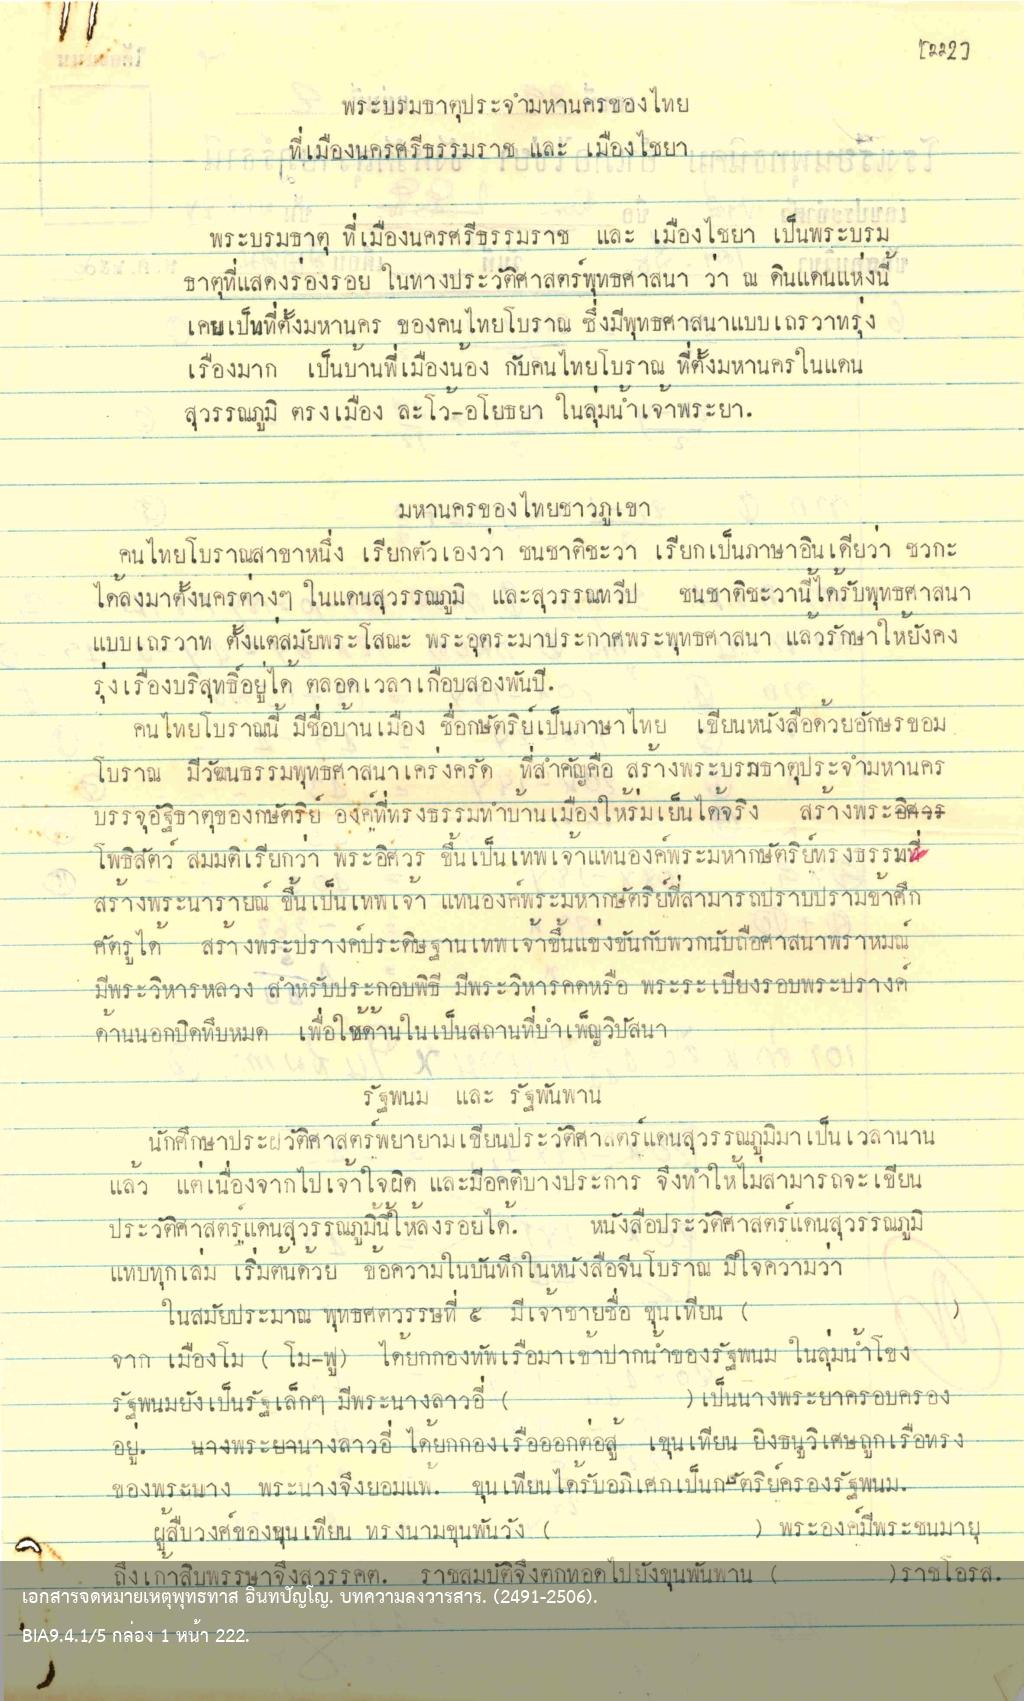 [222]
พระบรมธาตุประจำมหานครของไทย
ที่เมืองนครศรีธรรมราช และ เมืองไชยา
พระบรมธาตุ ที่เมืองนครศรีธรรมราช และ เมืองไชยา เป็นพระบรม
ธาตุที่แสดงร่องรอย ในทางประวัติศาสตร์พุทธศาสนา ว่า ณ ดินแดนแห่งนี้
เคยเป็นที่ตั้งมหานคร ของคนไทยโบราณ ซึ่งมีพุทธศาสนาแบบเถรวาทรุ่ง
เรืองมาก เป็นบ้านพี่เมืองน้อง กับคนไทยโบราณ ที่ตั้งมหานครในแดน
สุวรรณภูมิ ตรงเมือง ละโว้-อโยธยา ในลุ่มน้ำเจ้าพระยา.
มหานครของไทยชาวภูเขา
คนไทยโบราณสาขาหนึ่ง เรียกตัวเองว่า ชนชาติชะวา เรียกเป็นภาษาอินเดียว่า ชวกะ
ได้ลงมาตั้งนครต่างๆ ในแดนสุวรรณภูมิ และสุวรรณทวีป ชนชาติชะวานี้ได้รับพุทธศาสนา
แบบเถรวาท ตั้งแต่สมัยพระโสณะ พระอุตระมาประกาศพระพุทธศาสนา แล้วรักษาให้ยังคง
รุ่งเรืองบริสุทธิ์อยู่ได้ ตลอดเวลาเกือบสองพันปี.
คนไทยโบราณนี้ มีชื่อบ้านเมือง ชื่อกษัตริย์เป็นภาษาไทย เขียนหนังสือด้วยอักษรขอม
โบราณ มีวัฒนธรรมพุทธศาสนาเคร่งครัด ที่สำคัญคือ สร้างพระบรมธาตุประจำมหานคร
บรรจุอัฐิธาตุของกษัตริย์ องค์ที่ทรงธรรมทำบ้านเมืองให้ร่มเย็นได้จริง สร้างพระอิศวร
โพธิสัตว์ สมมติเรียกว่า พระอิศวร ขึ้นเป็นเทพเจ้าแทนองค์พระมหากษัตริย์ทรงธรรมที่
สร้างพระนารายณ์ ขึ้นเป็นเทพเจ้า แทนองค์พระมหากษัตริย์ที่สามารถปราบปรามข้าศึก
ศัตรูได้ สร้างพระปรางค์ประดิษฐานเทพเจ้าขึ้นแข่งขันกับพวกนับถือศาสนาพราหมณ์
มีพระวิหารหลวง สำหรับประกอบพิธี มีพระวิหารคดหรือ พระระเบียงรอบพระปรางค์
ด้านนอกปิดทึบหมด เพื่อใช้ด้านในเป็นสถานที่บำเพ็ญวิปัสนา
รัฐพนม และ รัฐพันพาน
นักศึกษาประวัติศาสตร์พยายามเขียนประวัติศาสตร์แดนสุวรรณภูมิมาเป็นเวลานาน
แล้ว แต่เนื่องจากไปเจ้าใจผิด และมีอคติบางประการ จึงทำให้ไม่สามารถจะเขียน
ประวัติศาสตร์แดนสุวรรณภูมินี้ให้ลงรอยได้. หนังสือประวัติศาสตร์แดนสุวรรณภูมิ
แทบทุกเล่ม เริ่มต้นด้วย ข้อความในบันทึกในหนังสือจีนโบราณ มีใจความว่า
ในสมัยประมาณ พุทธศตวรรษที่ ๕ มีเจ้าชายชื่อ ขุนเทียน ( )
จาก เมืองโม ( โม-ฟู) ได้ยกกองทัพเรือมาเข้าปากน้ำของรัฐพนม ในลุ่มน้ำโขง
รัฐพนมยังเป็นรัฐเล็กๆ มีพระนางลาวอี่ ( )เป็นนางพระยาครอบครอง
อยู่. นางพระยานางลาวอี่ ได้ยกกองเรือออกต่อสู้ เขุนเทียน ยิงธนูวิเศษถูกเรือทรง
ของพระนาง พระนางจึงยอมแพ้. ขุนเทียนได้รับอภิเศกเป็นกษัตริย์ครองรัฐพนม.
ผู้สืบวงศ์ของขุนเทียน ทรงนามขุนพันวัง ( ) พระองค์มีพระชนมายุ
ถึงเก้าสิบพรรษาจึงสวรรคต. ราชสมบัติจึงตกทอดไปยังขุนพันพาน ( )ราชโอรส.
เอกสารจดหมายเหตุพุทธทาส อินทปัญโญ. บทความลงวารสาร. (2491-2506).
BIA9.4.1/5 กล่อง 1 หน้า 222.